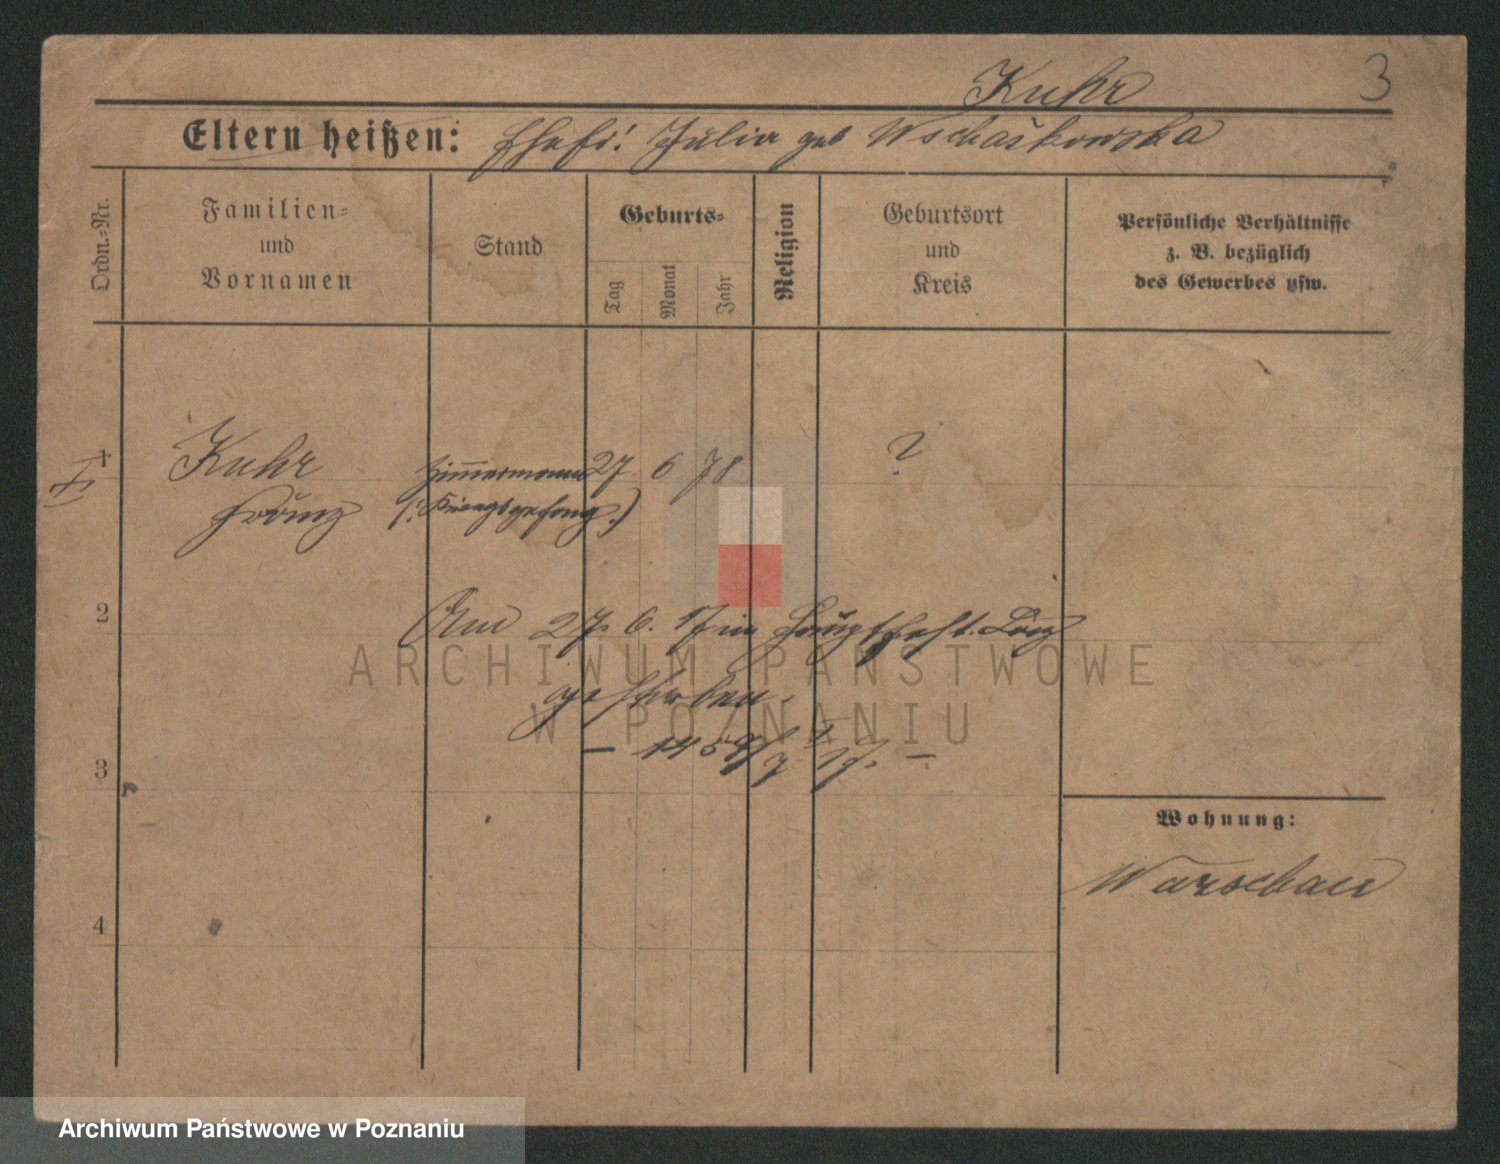 3
Kuhr
Eltern heißen: Ehefr: Julia geb Wschaskowska
Ordn.-Nr.
Familien-
und
Vornamen
Stand
Geburts-
Tag
Monat
Jahr
Religion
Geburtsort
und
Kreis
Persönliche Verhältnisse
z. B. bezüglich
des Gewerbes usw.
1 Kuhr Zimmermann 27 6 78 ?
Franz (Kriegsgefang.)
2 Am 27. 6. 17 in
gestorben.
3
Wohnung:
Warschau
4
ARCHIWUM PAŃSTWOWE
W POZNANIU
Archiwum Państwowe w Poznaniu